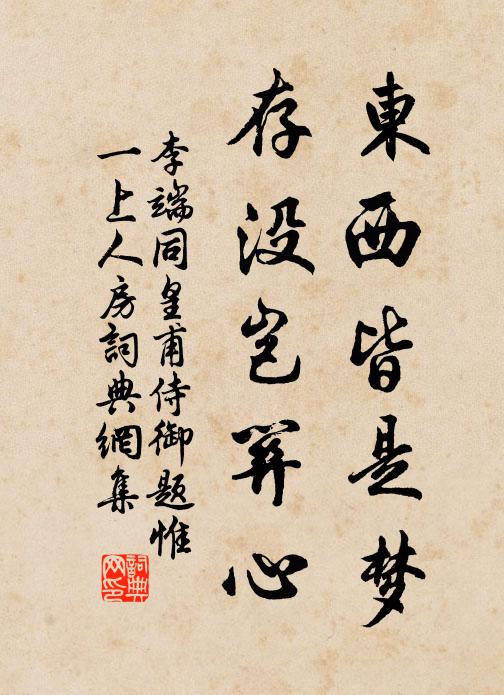 東西皆是梦
存没岂關心
李端同皇甫侍御题惟
一上人房詞典網集
詞典
网印